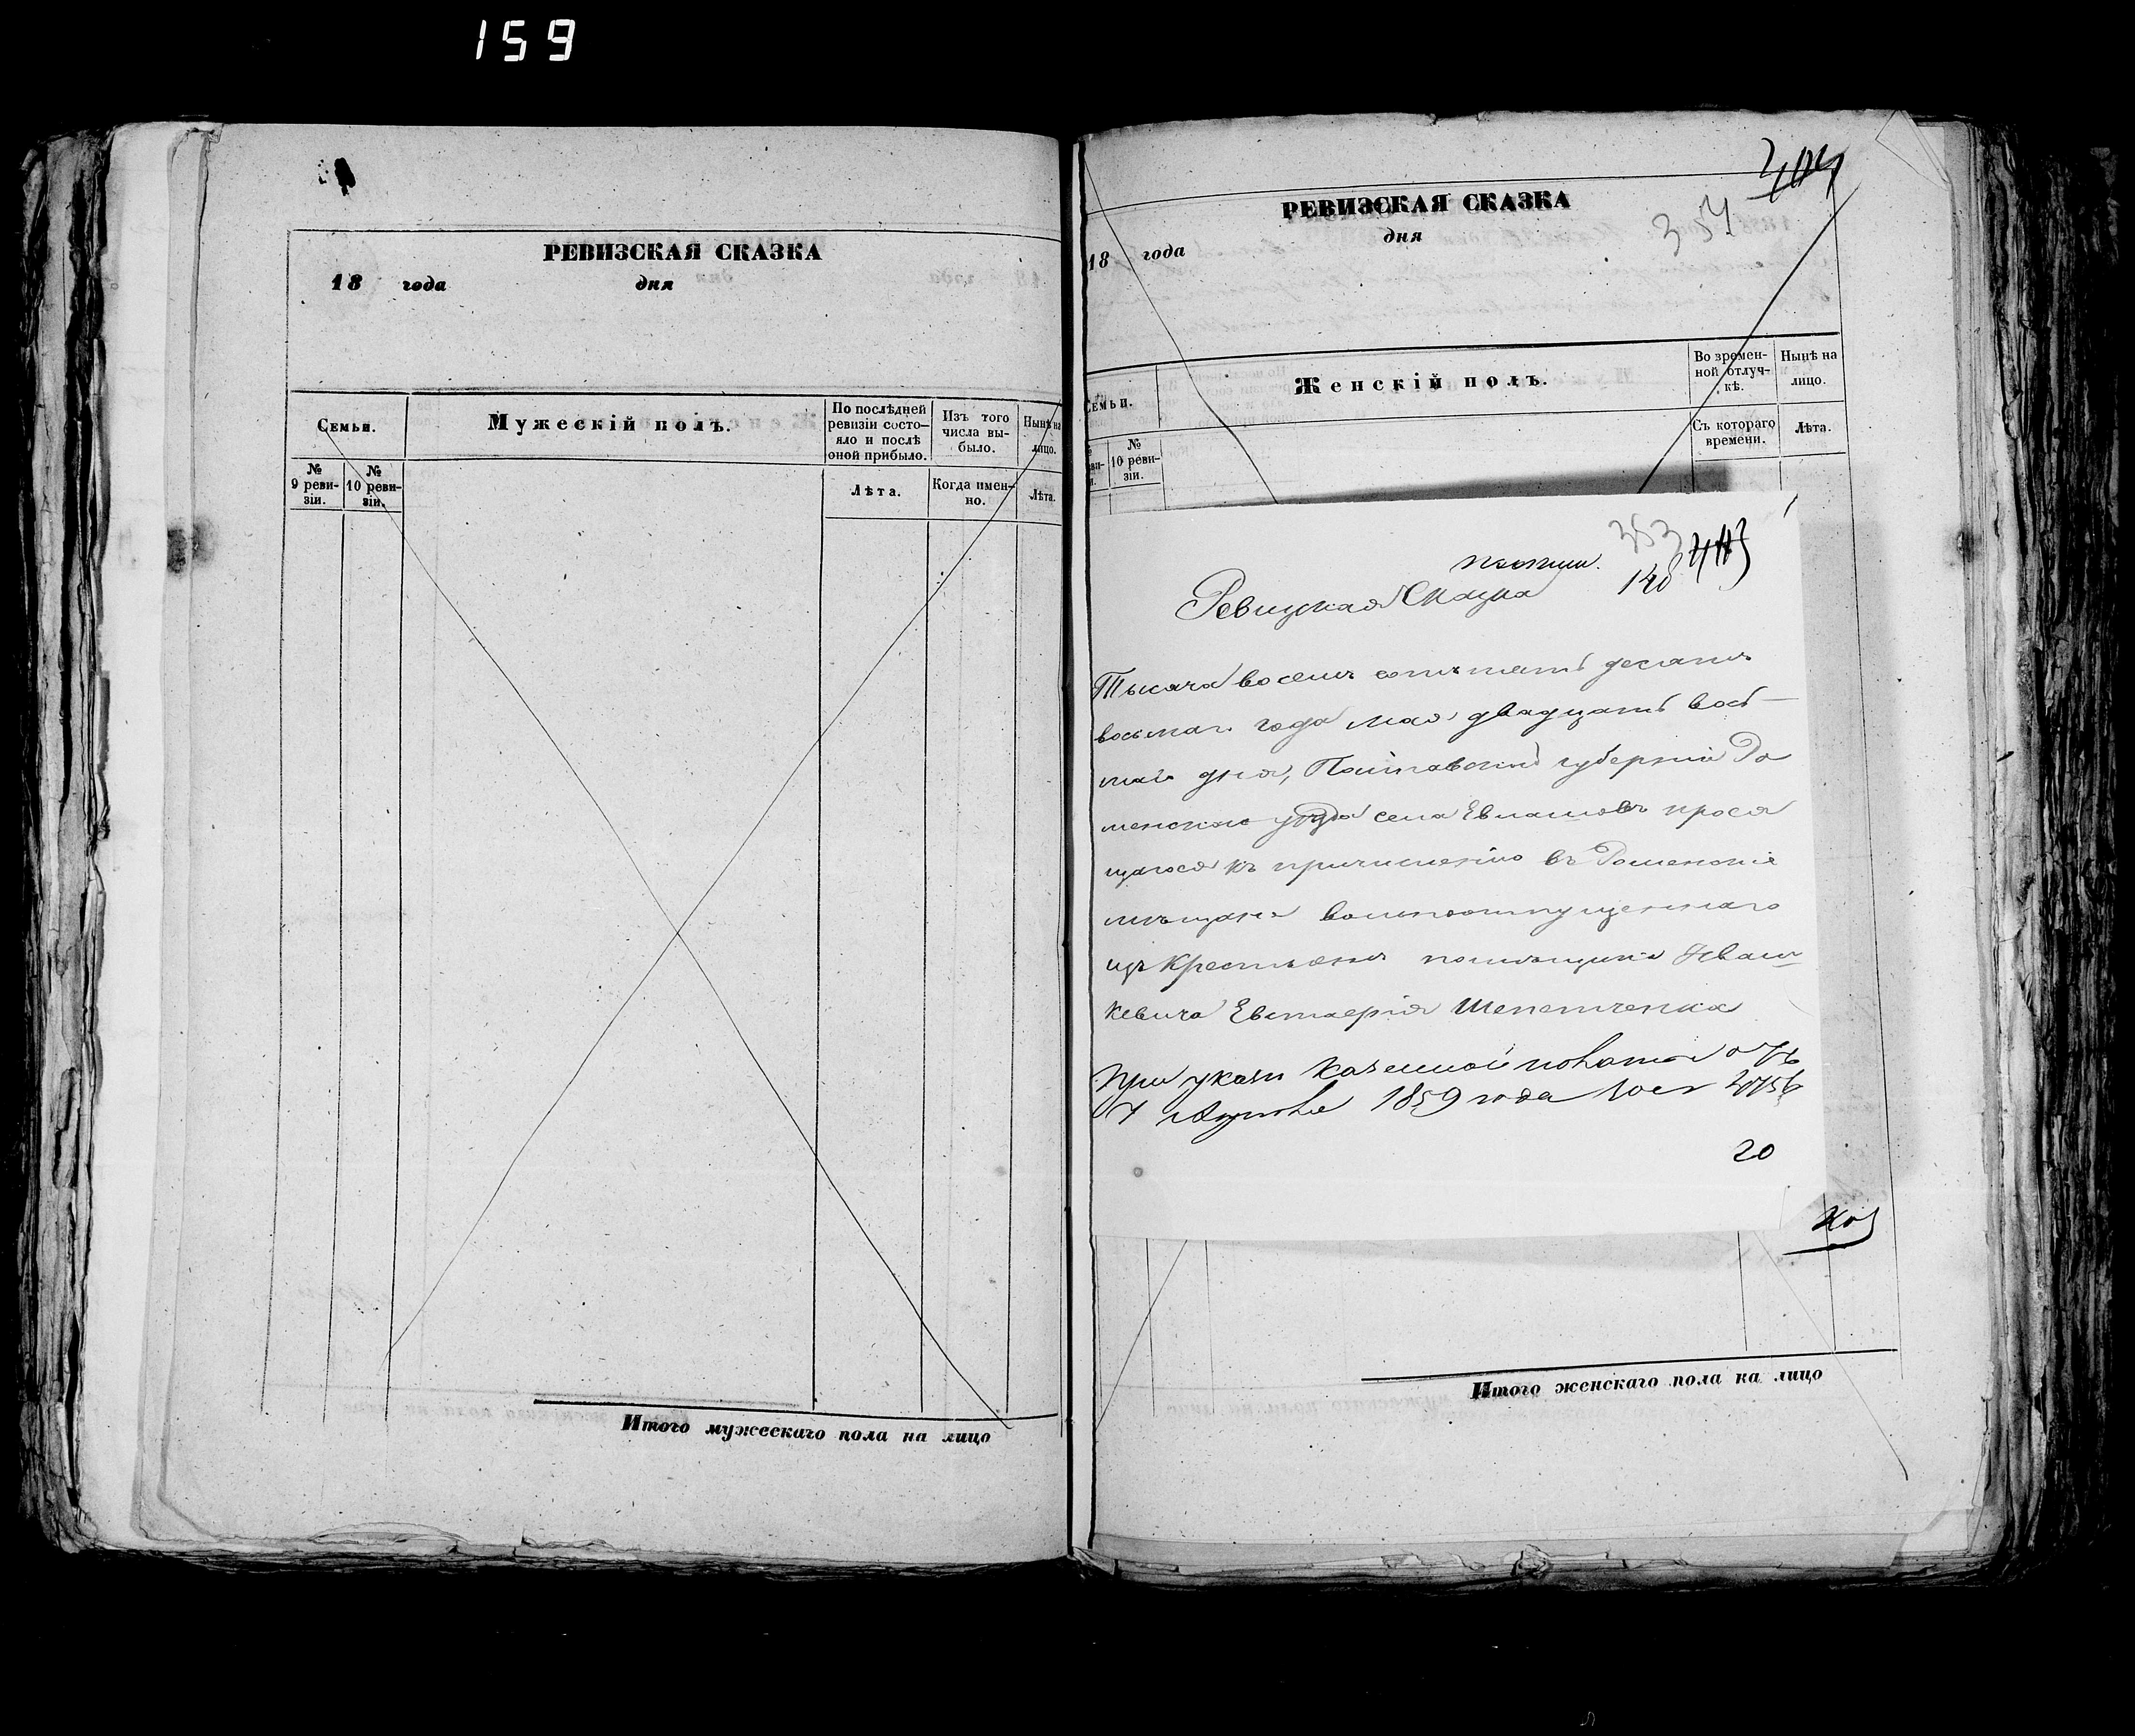 159
РЕВИЗСКАЯ СКАЗКА
18 года дня
Семьи.
Мужескій полъ.
По послѣдней ревизіи состо-
яло и послѣ оной прибыло.
Изъ того числа вы-
было.
Нынѣ на лицо.
№ 9 реви-
зіи.
№ 10 реви-
зіи.
Лѣта.
Когда имен-
но.
Лѣта.
Итого мужескаго пола на лицо
354
РЕВИЗСКАЯ СКАЗКА
18 года дня
Семьи.
Женскій полъ.
Во времен-
ной отлуч-
кѣ.
Нынѣ на лицо.
№ 10 реви-
зіи.
Съ котораго времени.
Лѣта.
353
копія.
140
Ревизская Сказка
Тысяча восемь сотъ пять десятъ
восьмаго года мая двадцать вось-
маго дня, Полтавской губерніи Ро
менскаго уѣзда села Евлашовъ прося
щагося къ причисленію въ Роменскіе
мѣщане вольноотпущеннаго
изъ крестьянъ помѣщика Иваш-
кевича Евстафія Шепетченка
При указѣ казенной палаты отъ
4 1859 года за №
20
Итого женскаго пола на лицо